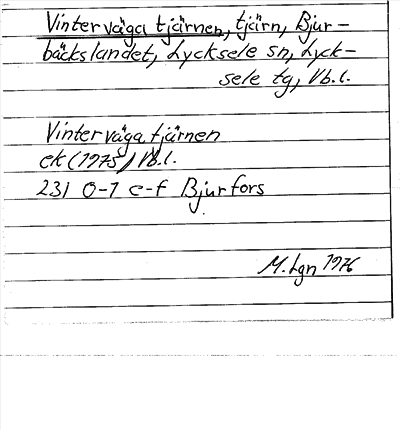 Vinterväga tjärnen, tjärn, Bjur-
bäckslandet, Lycksele sn, Lyck-
sele tg, Vb.l.
Vinterväga tjärnen
ek (1975) Vb.l.
231 0-1 e-f Bjurfors
M. Lgn 1976